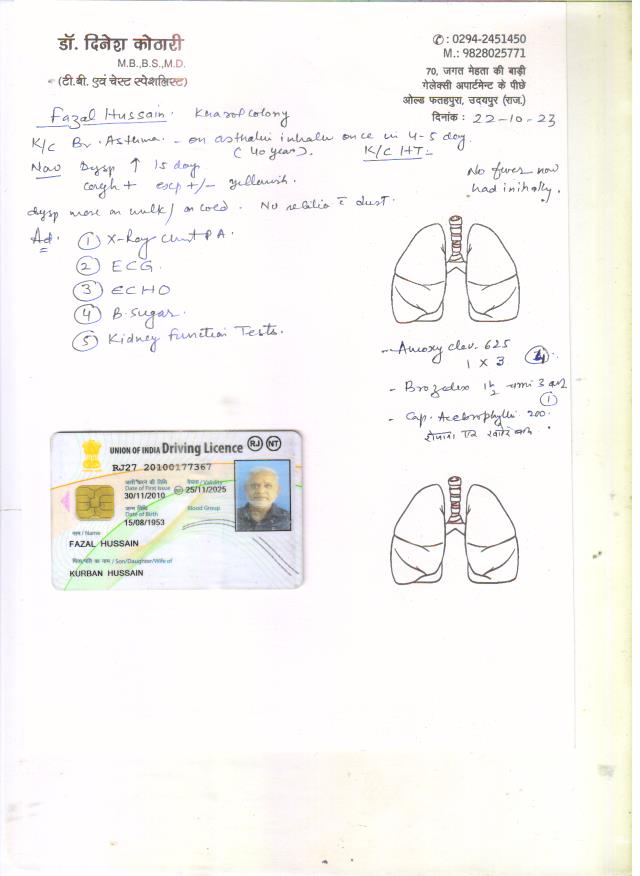 डॉ. दिनेश कोठारी
M.B.,B.S.,M.D.
(टी.बी. एवं चेस्ट स्पेशलिस्ट)
✆: 0294-2451450
M.: 9828025771
70, जगत मेहता की बाड़ी
गेलेक्सी अपार्टमेन्ट के पीछे
ओल्ड फतहपुरा, उदयपुर (राज.)
दिनांक: 22-10-23
Fazal Hussain. Kharol colony
K/C Br. Asthma - on asthalin inhaler once in 4-5 day.
(40 years). K/C HT
Now Dysp ↑ 15 days
cough + exp +/- yellowish.
No fever now
had initially.
dysp more on walk / on cold. No relation c dust.
Ad.
① X-Ray Chest P A.
② ECG.
③ ECHO
④ B. Sugar.
⑤ Kidney Function Tests.
- Amoxy clav. 625
1 x 3
- Brozedex 1½ 3
①
- Cap. Acebrophylli 200.
UNION OF INDIA Driving Licence RJ NT
RJ27 20100177367
जारी करने की तिथि
Date of First Issue
30/11/2010
वैधता / Validity
25/11/2025
जन्म तिथि
Date of Birth
15/08/1953
Blood Group
नाम / Name
FAZAL HUSSAIN
पिता/पति का नाम / Son/Daughter/Wife of
KURBAN HUSSAIN